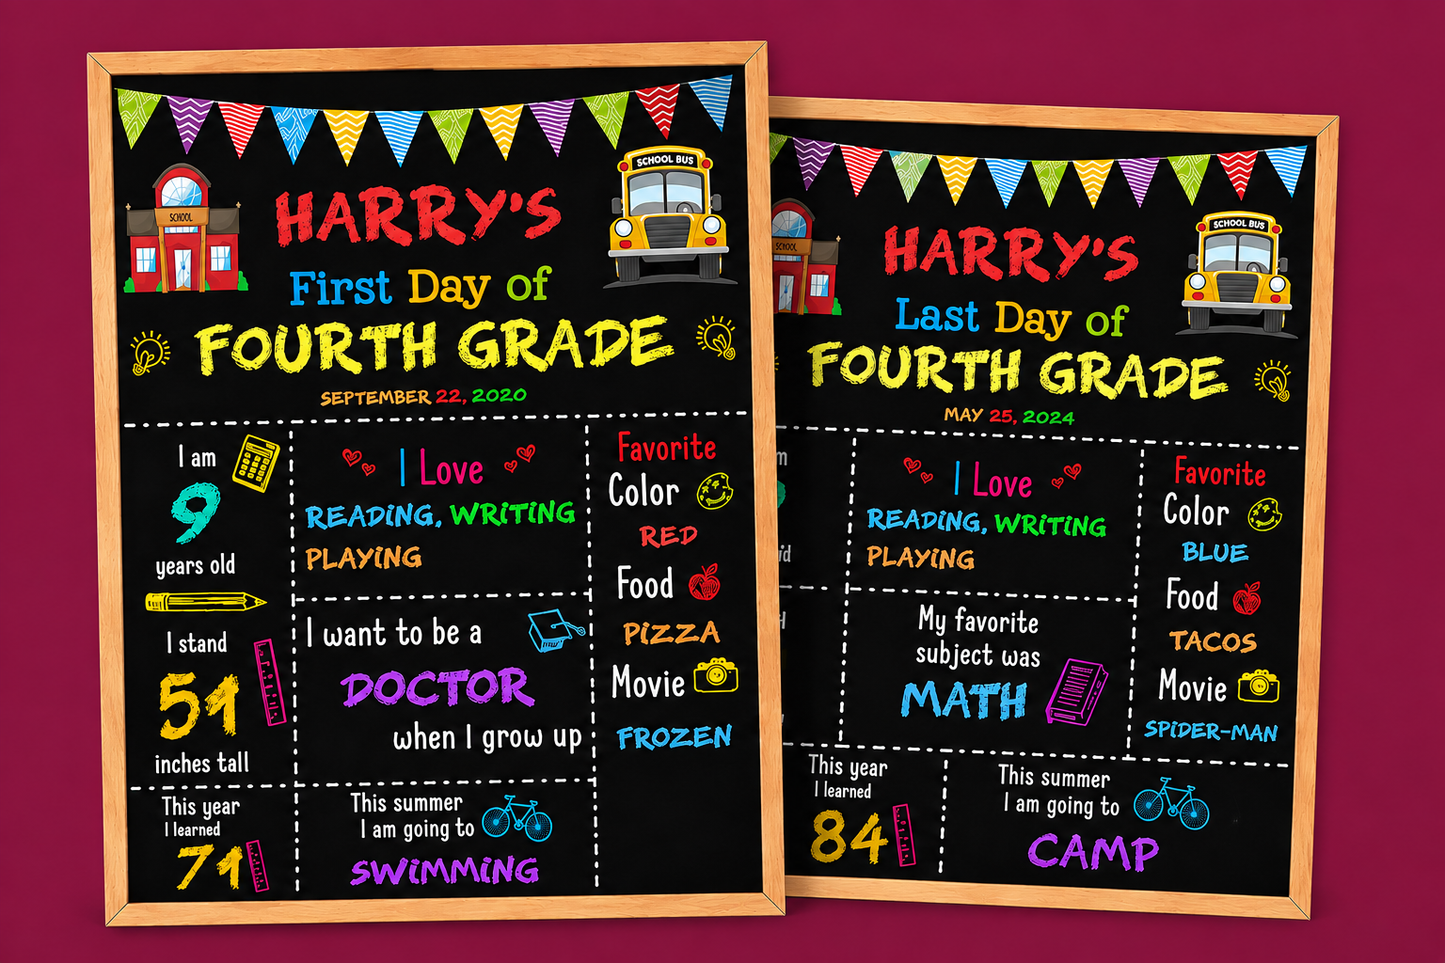 SCHOOL
SCHOOL BUS
HARRY'S
First Day of
FOURTH GRADE
SEPTEMBER 22, 2020
I am
9
years old
I stand
51
inches tall
This year
I learned
71
I Love
READING, WRITING
PLAYING
I want to be a
DOCTOR
when I grow up
This summer
I am going to
SWIMMING
Favorite
Color
RED
Food
PIZZA
Movie
FROZEN
SCHOOL
SCHOOL BUS
HARRY'S
Last Day of
FOURTH GRADE
MAY 25, 2024
I Love
READING, WRITING
PLAYING
My favorite
subject was
MATH
This year
I learned
84
This summer
I am going to
CAMP
Favorite
Color
BLUE
Food
TACOS
Movie
SPIDER-MAN